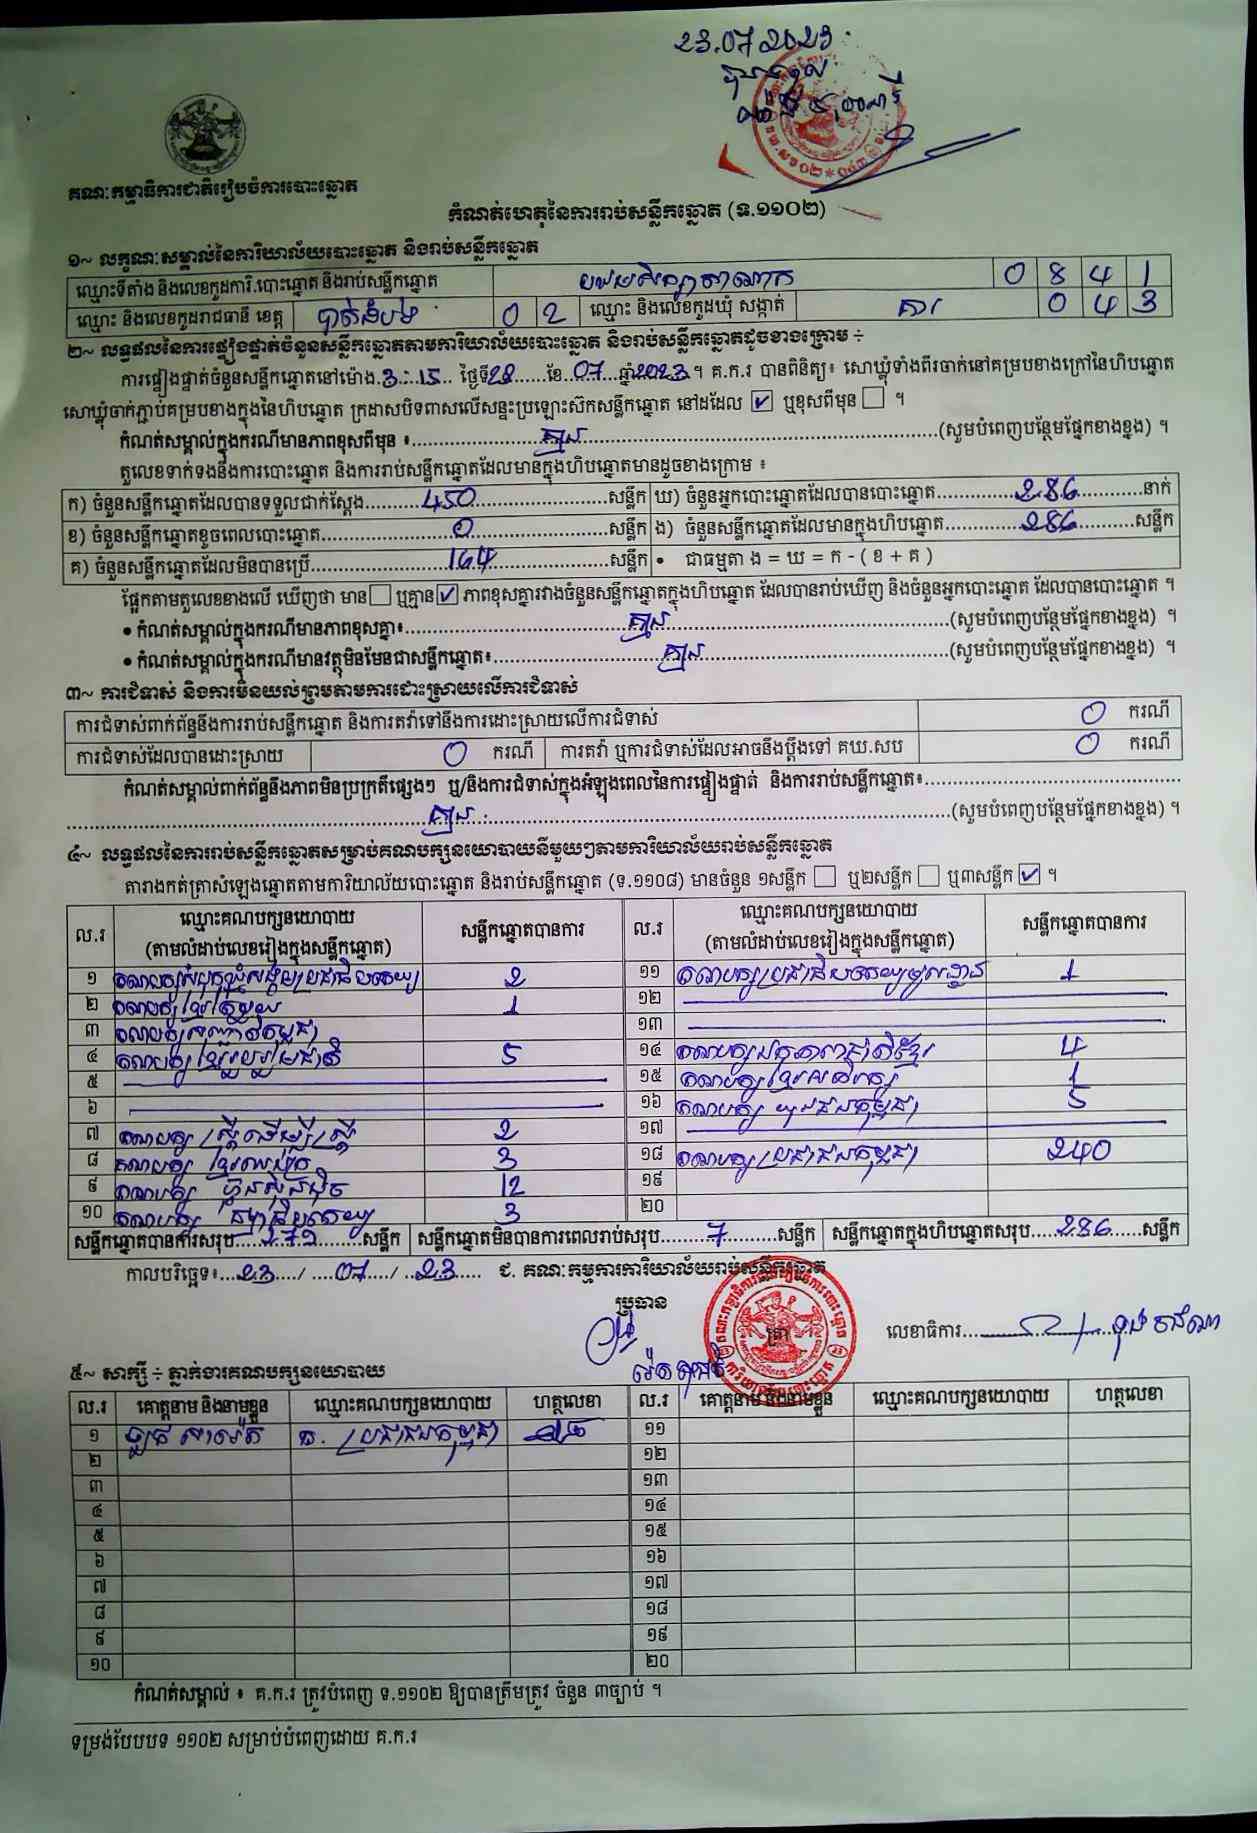 23.07 2023
គណៈកម្មាធិការជាតិរៀបចំការបោះឆ្នោត
កំណត់ហេតុនៃការរាប់សន្លឹកឆ្នោត (ទ.១១០២)
១~ លក្ខណៈសម្គាល់នៃការិយាល័យបោះឆ្នោត និងរាប់សន្លឹកឆ្នោត
ឈ្មោះទីតាំង និងលេខកូដការិ.បោះឆ្នោត និងរាប់សន្លឹកឆ្នោត 0 8 4 1
ឈ្មោះ និងលេខកូដរាជធានី ខេត្ត បាត់ដំបង 0 2 ឈ្មោះ និងលេខកូដឃុំ សង្កាត់ 0 4 3
២~ លទ្ធផលនៃការផ្ទៀងផ្ទាត់ចំនួនសន្លឹកឆ្នោតតាមការិយាល័យបោះឆ្នោត និងរាប់សន្លឹកឆ្នោតដូចខាងក្រោម ÷
ការផ្ទៀងផ្ទាត់ចំនួនសន្លឹកឆ្នោតនៅម៉ោង 3:15 ថ្ងៃទី 23 ខែ 07 ឆ្នាំ 2023 ។ គ.ក.រ បានពិនិត្យ៖ សោឃ្លុំទាំងពីរចាក់នៅគម្របខាងក្រៅនៃហិបឆ្នោត
សោឃ្លុំចាក់ភ្ជាប់គម្របខាងក្នុងនៃហិបឆ្នោត ក្រដាសបិទពាសលើសន្ទះប្រឡោះស៊កសន្លឹកឆ្នោត នៅដដែល ☑ ឬខុសពីមុន ☐ ។
កំណត់សម្គាល់ក្នុងករណីមានភាពខុសពីមុន ៖ គ្មាន (សូមបំពេញបន្ថែមផ្នែកខាងខ្នង) ។
តួលេខទាក់ទងនឹងការបោះឆ្នោត និងការរាប់សន្លឹកឆ្នោតដែលមានក្នុងហិបឆ្នោតមានដូចខាងក្រោម ៖
ក) ចំនួនសន្លឹកឆ្នោតដែលបានទទួលជាក់ស្តែង 450 សន្លឹក ឃ) ចំនួនអ្នកបោះឆ្នោតដែលបានបោះឆ្នោត 286 នាក់
ខ) ចំនួនសន្លឹកឆ្នោតខូចពេលបោះឆ្នោត 0 សន្លឹក ង) ចំនួនសន្លឹកឆ្នោតដែលមានក្នុងហិបឆ្នោត 286 សន្លឹក
គ) ចំនួនសន្លឹកឆ្នោតដែលមិនបានប្រើ 164 សន្លឹក • ជាធម្មតា ង = ឃ = ក - ( ខ + គ )
ផ្អែកតាមតួលេខខាងលើ ឃើញថា មាន ☐ ឬគ្មាន ☑ ភាពខុសគ្នារវាងចំនួនសន្លឹកឆ្នោតក្នុងហិបឆ្នោត ដែលបានរាប់ឃើញ និងចំនួនអ្នកបោះឆ្នោត ដែលបានបោះឆ្នោត ។
• កំណត់សម្គាល់ក្នុងករណីមានភាពខុសគ្នា៖ គ្មាន (សូមបំពេញបន្ថែមផ្នែកខាងខ្នង) ។
• កំណត់សម្គាល់ក្នុងករណីមានវត្ថុមិនមែនជាសន្លឹកឆ្នោត៖ គ្មាន (សូមបំពេញបន្ថែមផ្នែកខាងខ្នង) ។
៣~ ការជំទាស់ និងការមិនយល់ព្រមតាមការដោះស្រាយលើការជំទាស់
ការជំទាស់ពាក់ព័ន្ធនឹងការរាប់សន្លឹកឆ្នោត និងការតវ៉ាទៅនឹងការដោះស្រាយលើការជំទាស់ 0 ករណី
ការជំទាស់ដែលបានដោះស្រាយ 0 ករណី ការតវ៉ា ឬការជំទាស់ដែលអាចនឹងប្តឹងទៅ គឃ.សប 0 ករណី
កំណត់សម្គាល់ពាក់ព័ន្ធនឹងភាពមិនប្រក្រតីផ្សេងៗ ឬ/និងការជំទាស់ក្នុងអំឡុងពេលនៃការផ្ទៀងផ្ទាត់ និងការរាប់សន្លឹកឆ្នោត៖
គ្មាន (សូមបំពេញបន្ថែមផ្នែកខាងខ្នង) ។
៤~ លទ្ធផលនៃការរាប់សន្លឹកឆ្នោតសម្រាប់គណបក្សនយោបាយនីមួយៗតាមការិយាល័យរាប់សន្លឹកឆ្នោត
តារាងកត់ត្រាសំឡេងឆ្នោតតាមការិយាល័យបោះឆ្នោត និងរាប់សន្លឹកឆ្នោត (ទ.១១០៨) មានចំនួន ១សន្លឹក ☐ ឬ២សន្លឹក ☐ ឬ៣សន្លឹក ☑ ។
ល.រ ឈ្មោះគណបក្សនយោបាយ (តាមលំដាប់លេខរៀងក្នុងសន្លឹកឆ្នោត) សន្លឹកឆ្នោតបានការ ល.រ ឈ្មោះគណបក្សនយោបាយ (តាមលំដាប់លេខរៀងក្នុងសន្លឹកឆ្នោត) សន្លឹកឆ្នោតបានការ
១ 2 ១១ 1
២ 1 ១២
៣ ១៣
៤ គណបក្សខ្មែររួបរួមជាតិ 5 ១៤ 4
៥ ១៥ 1
៦ ១៦ 5
៧ គណបក្ស ស្ត្រីដើម្បីស្ត្រី 2 ១៧
៨ 3 ១៨ គណបក្សប្រជាជនកម្ពុជា 240
៩ គណបក្ស ហ្វ៊ុនស៊ិនប៉ិច 12 ១៩
១០ 3 ២០
សន្លឹកឆ្នោតបានការសរុប 279 សន្លឹក សន្លឹកឆ្នោតមិនបានការពេលរាប់សរុប 7 សន្លឹក សន្លឹកឆ្នោតក្នុងហិបឆ្នោតសរុប 286 សន្លឹក
កាលបរិច្ឆេទ៖ 23 / 07 / 23 ជ. គណៈកម្មការការិយាល័យរាប់សន្លឹកឆ្នោត
ប្រធាន
លេខាធិការ
៥~ សាក្សី ÷ ភ្នាក់ងារគណបក្សនយោបាយ
ល.រ គោត្តនាម និងនាមខ្លួន ឈ្មោះគណបក្សនយោបាយ ហត្ថលេខា ល.រ គោត្តនាម និងនាមខ្លួន ឈ្មោះគណបក្សនយោបាយ ហត្ថលេខា
១ គ. ប្រជាជនកម្ពុជា ១១
២ ១២
៣ ១៣
៤ ១៤
៥ ១៥
៦ ១៦
៧ ១៧
៨ ១៨
៩ ១៩
១០ ២០
កំណត់សម្គាល់ ៖ គ.ក.រ ត្រូវបំពេញ ទ.១១០២ ឱ្យបានត្រឹមត្រូវ ចំនួន ៣ច្បាប់ ។
ទម្រង់បែបបទ ១១០២ សម្រាប់បំពេញដោយ គ.ក.រ